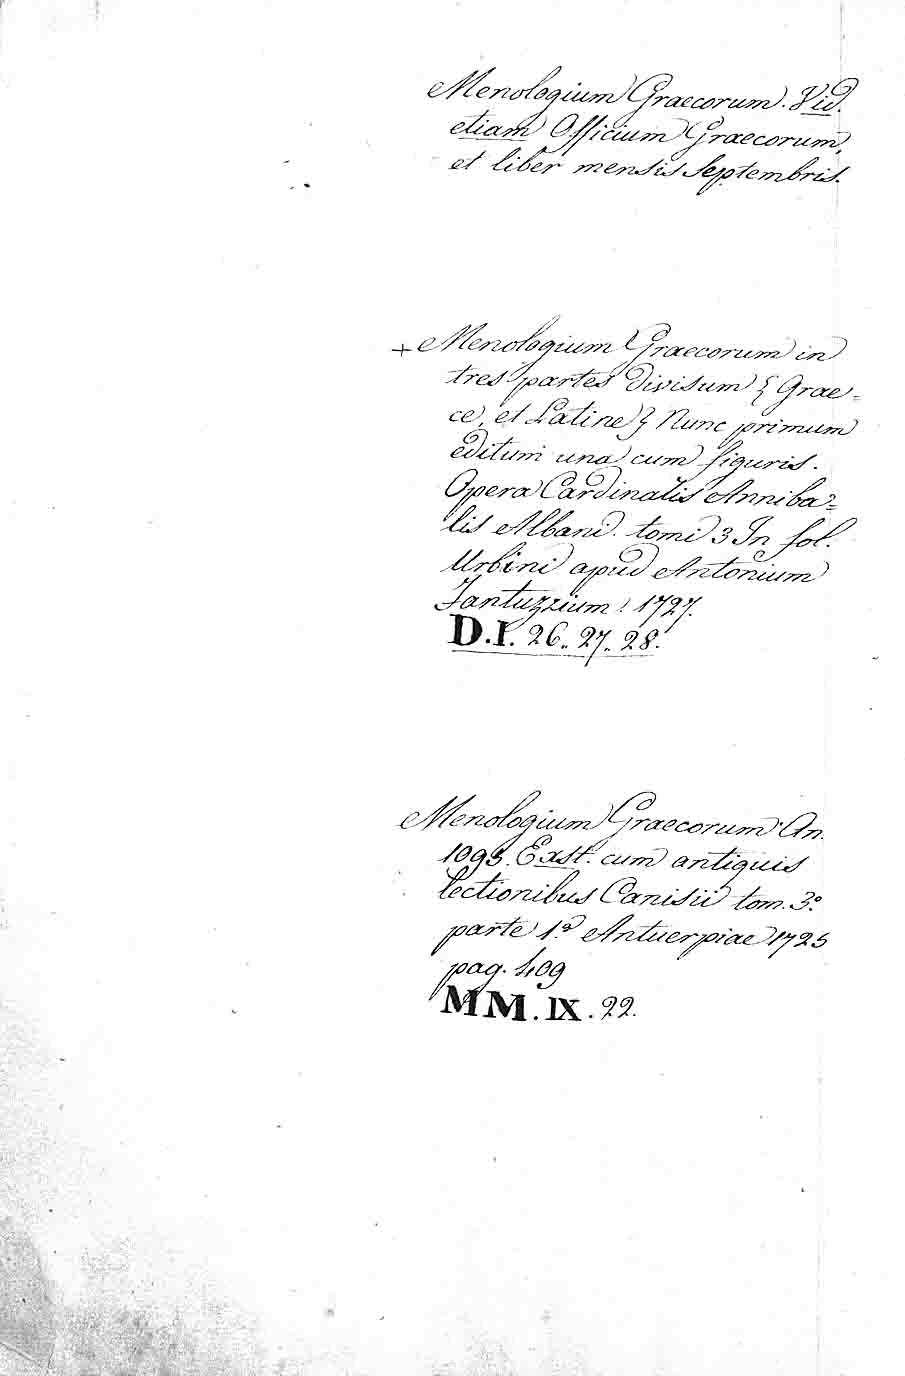 Menologium Graecorum. Vid.
etiam Officium Graecorum,
et liber mensis Septembris.
+ Menologium Graecorum in
tres partes divisum { Grae=
ce, et Latine } Nunc primum
editum una cum figuris.
Opera Cardinalis Anniba=
lis Albani. tomi 3 In fol.
Urbini apud Antonium
Fantuzzium. 1727.
D.I. 26.. 27.. 28.
Menologium Graecorum An.
1095. Exst. cum antiquis
lectionibus Canisii tom. 3.º
parte 1.ª Antuerpiae 1725
pag. 409
MM. IX. 22.